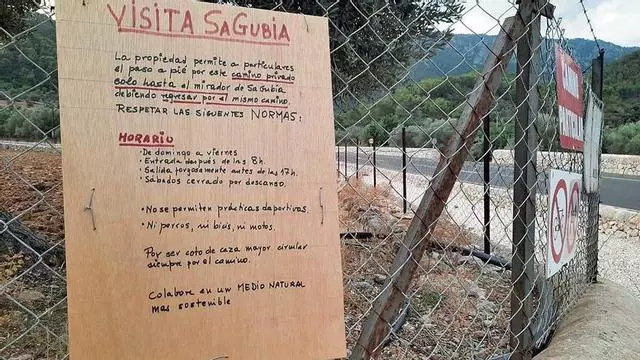 VISITA SAGUBIA
La propiedad permite a particulares
el paso a pié por este camino privado
solo hasta el mirador de Sa Gubia
debiendo regresar por el mismo camino.
RESPETAR LAS SIGUIENTES NORMAS:
HORARIO
• De domingo a viernes
• Entrada después de las 8h.
• Salida forzosamente antes de las 17h.
• Sábados cerrado por descanso.
• No se permiten prácticas deportivas.
• Ni perros, ni bicis, ni motos.
Por ser coto de caza mayor circular
siempre por el camino.
Colabore en un MEDIO NATURAL
mas sostenible